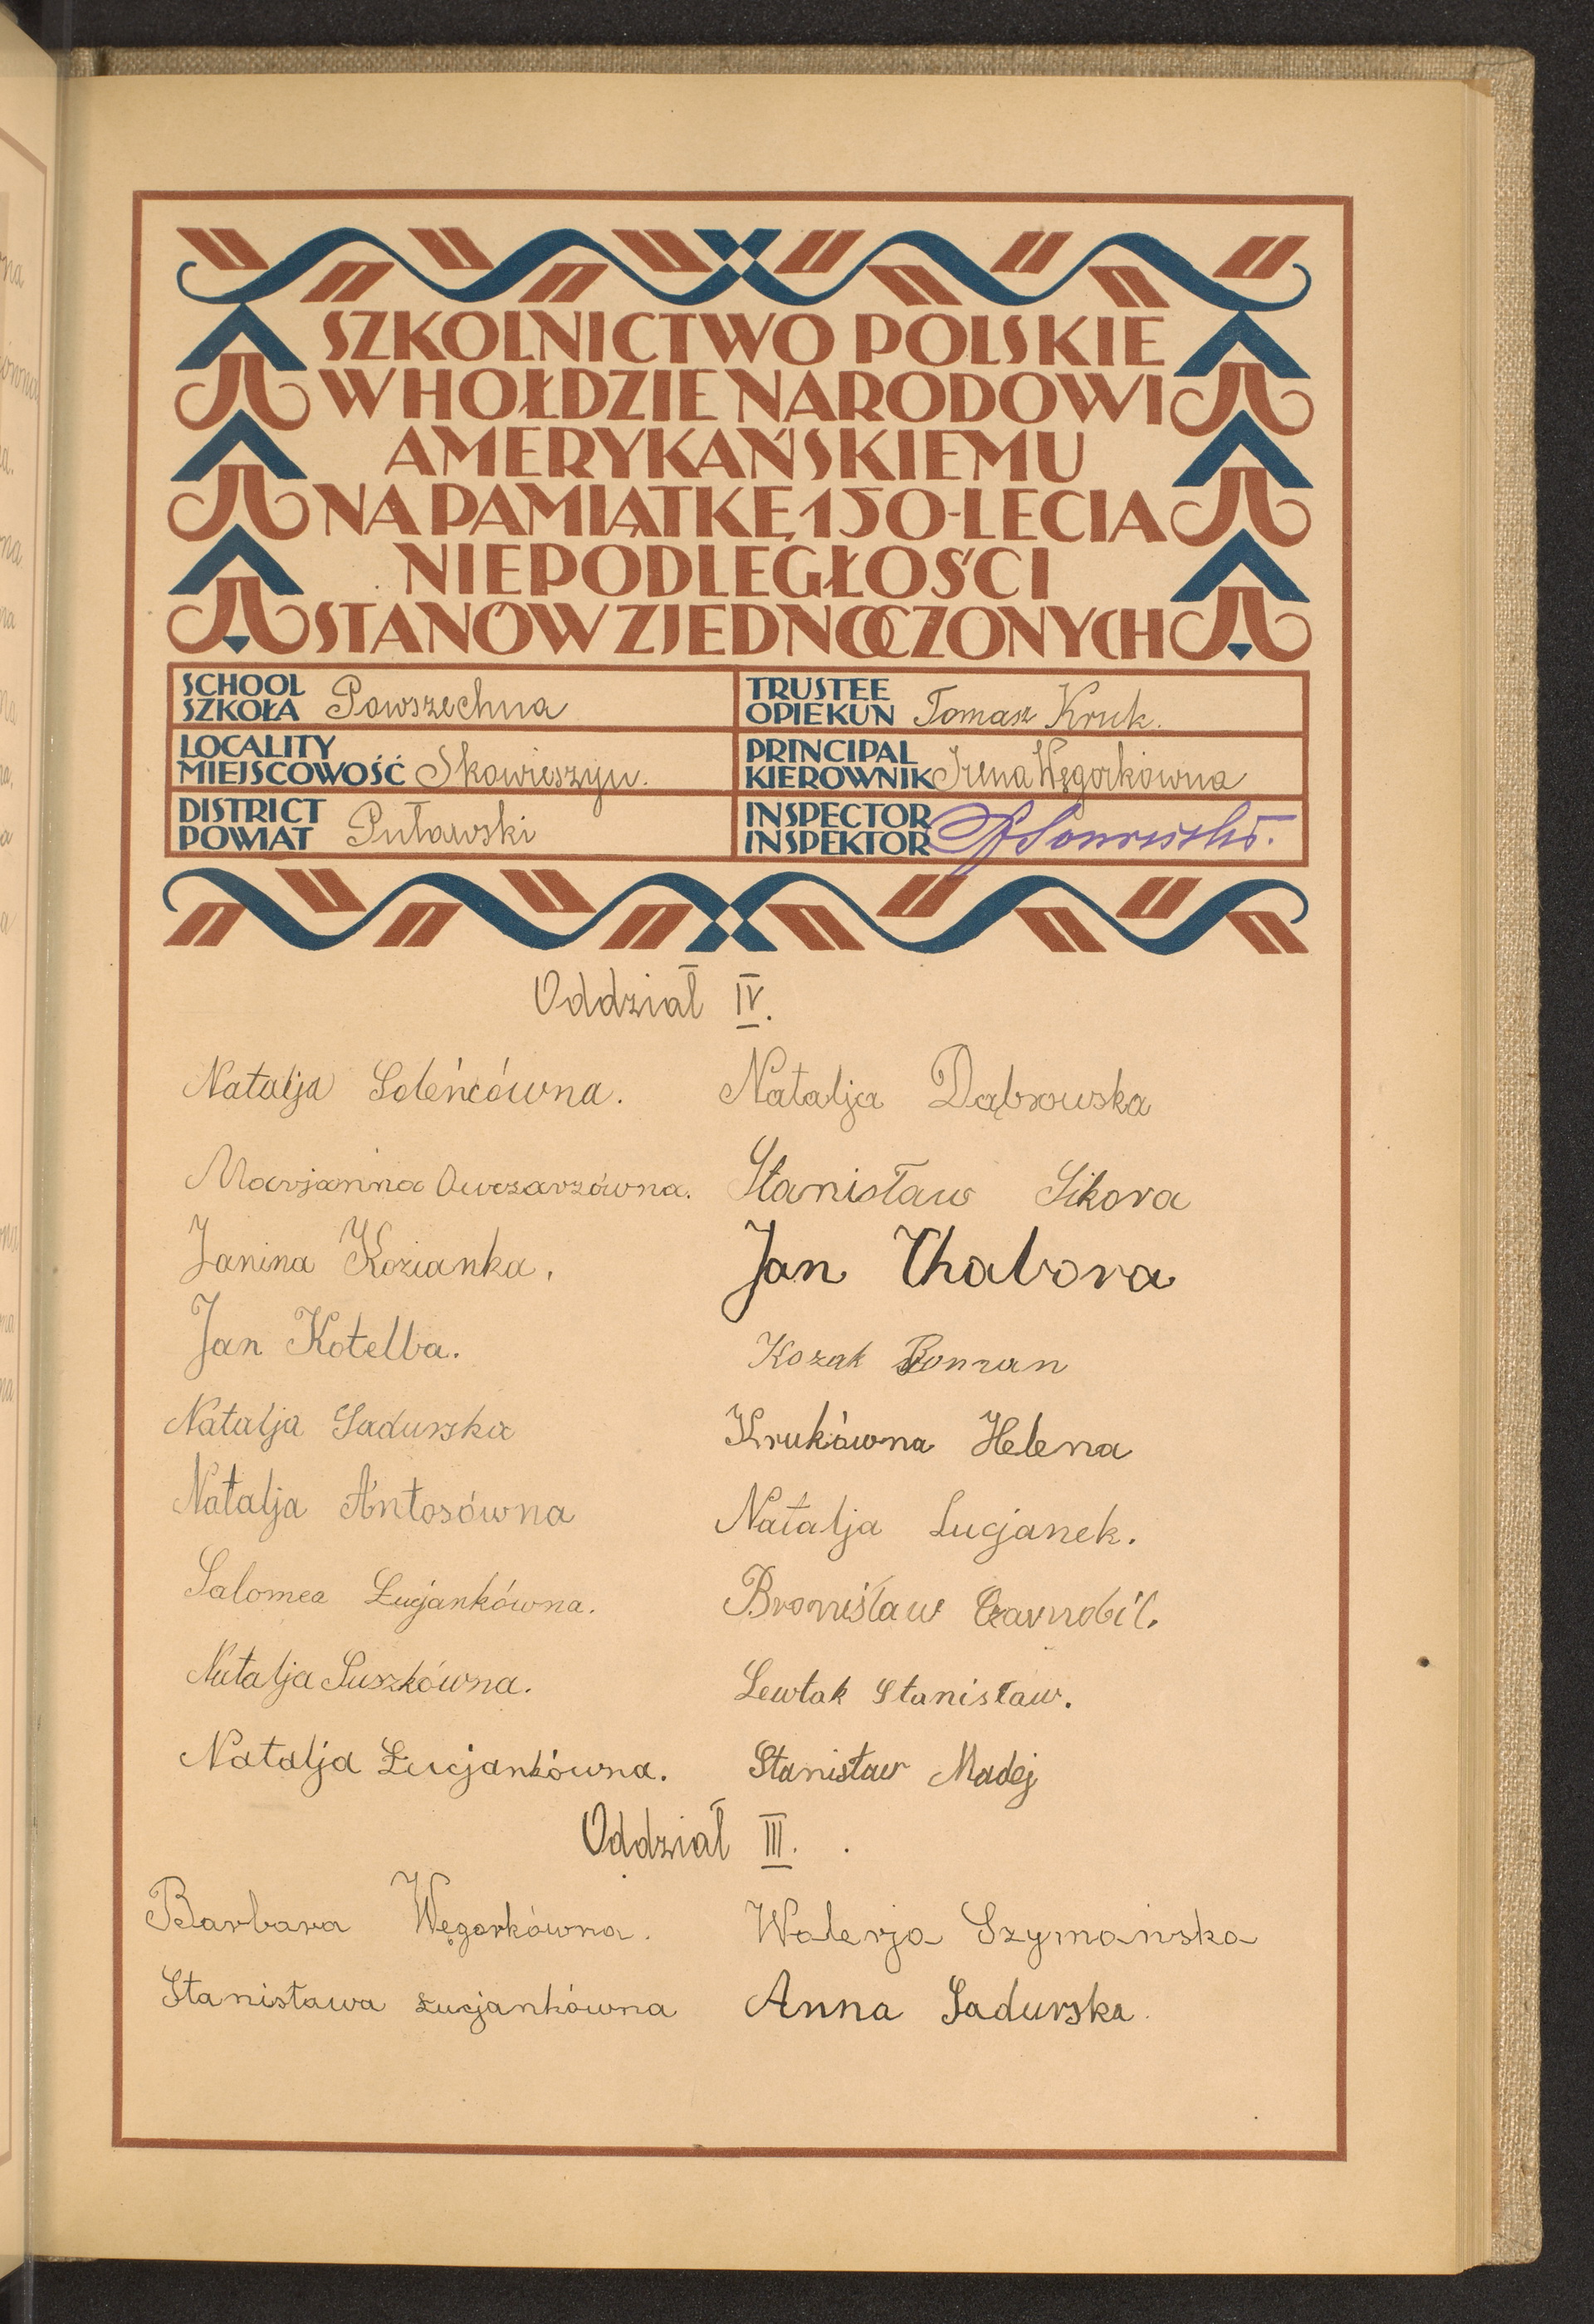 SZKOLNICTWO POLSKIE
W HOŁDZIE NARODOWI
AMERYKAŃSKIEMU
NA PAMIĄTKĘ 150-LECIA
NIEPODLEGŁOŚCI
STANÓW ZJEDNOCZONYCH
SCHOOL
SZKOŁA Powszechna
TRUSTEE
OPIEKUN Tomasz Kruk.
LOCALITY
MIEJSCOWOŚĆ Skowieszyn.
PRINCIPAL
KIEROWNIK Irena Węgorkówna
DISTRICT
POWIAT Puławski
INSPECTOR
INSPEKTOR
Oddział IV.
Natalja Soleńcówna.
Natalja Dąbrowska
Marjanna Owczarzówna.
Stanisław Sikora
Janina Kozianka.
Jan Chabora
Jan Kotelba.
Kozak Roman
Natalja Sadurska
Krukówna Helena
Natalja Antosówna
Natalja Lucjanek.
Salomea Łucjankówna.
Bronisław Czarnobil.
Natalja Suszkówna.
Lewtak Stanisław.
Natalja Łucjankówna.
Stanisław Madej
Oddział III.
Barbara Węgorkówna.
Walerja Szymańska
Stanisława Łucjankówna
Anna Sadurska.